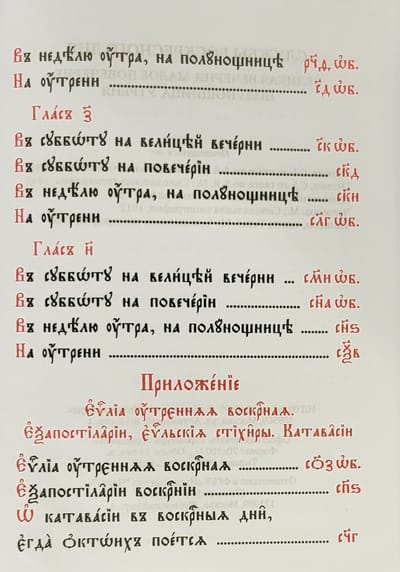 Въ недѣ́лю ᲂу҆́тра, на полꙋ́нощницѣ ... р҃чд, ѡ҆б.
На ᲂу҆́трени ... с҃д ѡ҆б.
Гла́съ з҃
Въ сꙋббѡ́тꙋ на вели́цѣй вече́рни ... с҃к ѡ҆б.
Въ сꙋббѡ́тꙋ на повече́рїи ... ск҃д
Въ недѣ́лю ᲂу҆́тра, на полꙋ́нощницѣ ... ск҃и
На ᲂу҆́трени ... сл҃г ѡ҆б.
Гла́съ и҃
Въ сꙋббѡ́тꙋ на вели́цѣй вече́рни ... см҃и ѡ҆б.
Въ сꙋббѡ́тꙋ на повече́рїи ... сн҃а ѡ҆б.
Въ недѣ́лю ᲂу҆́тра, на полꙋ́нощницѣ ... сн҃ѕ
На ᲂу҆́трени ... сѯ҃в
Приложе́нїе
Є҆ѵⷢ҇лїа ᲂу҆́трєннѧѧ воскрⷭ҇наѧ.
Є҆ѯапостїла́рїи є҆ѵⷢ҇льскїѧ стїхи̑ры. Катава̑сїи
Є҆ѵⷢ҇лїа ᲂу҆́трєннѧѧ воскрⷭ҇наѧ ... со҃з ѡ҆б.
Є҆ѯапостїла́рїи воскрⷭ҇нїи ... сп҃ѕ
Ѽ катава́сїи въ воскрⷭ҇ныѧ дни̑,
є҆гда̀ ѻ҆кто́ихъ пое́тсѧ ... сч҃г